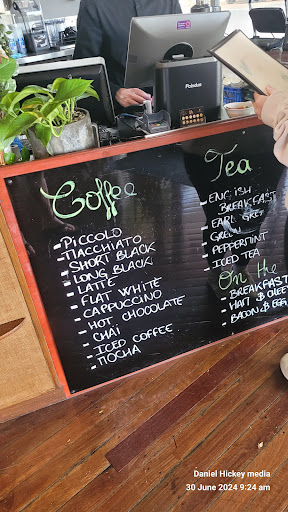 Posiflex
Coffee
- PICCOLO
- MACCHIATO
- SHORT BLACK
- LONG BLACK
- LATTE
- FLAT WHITE
- CAPPUCCINO
- HOT CHOCOLATE
- CHAI
- ICED COFFEE
- MOCHA
Tea
- ENGLISH
BREAKFAST
- EARL GREY
- GREEN
- PEPPERMINT
- ICED TEA
On the
- BREAKFAST
- HAM &
- BACON & EGG
Daniel Hickey media
30 June 2024 9:24 am